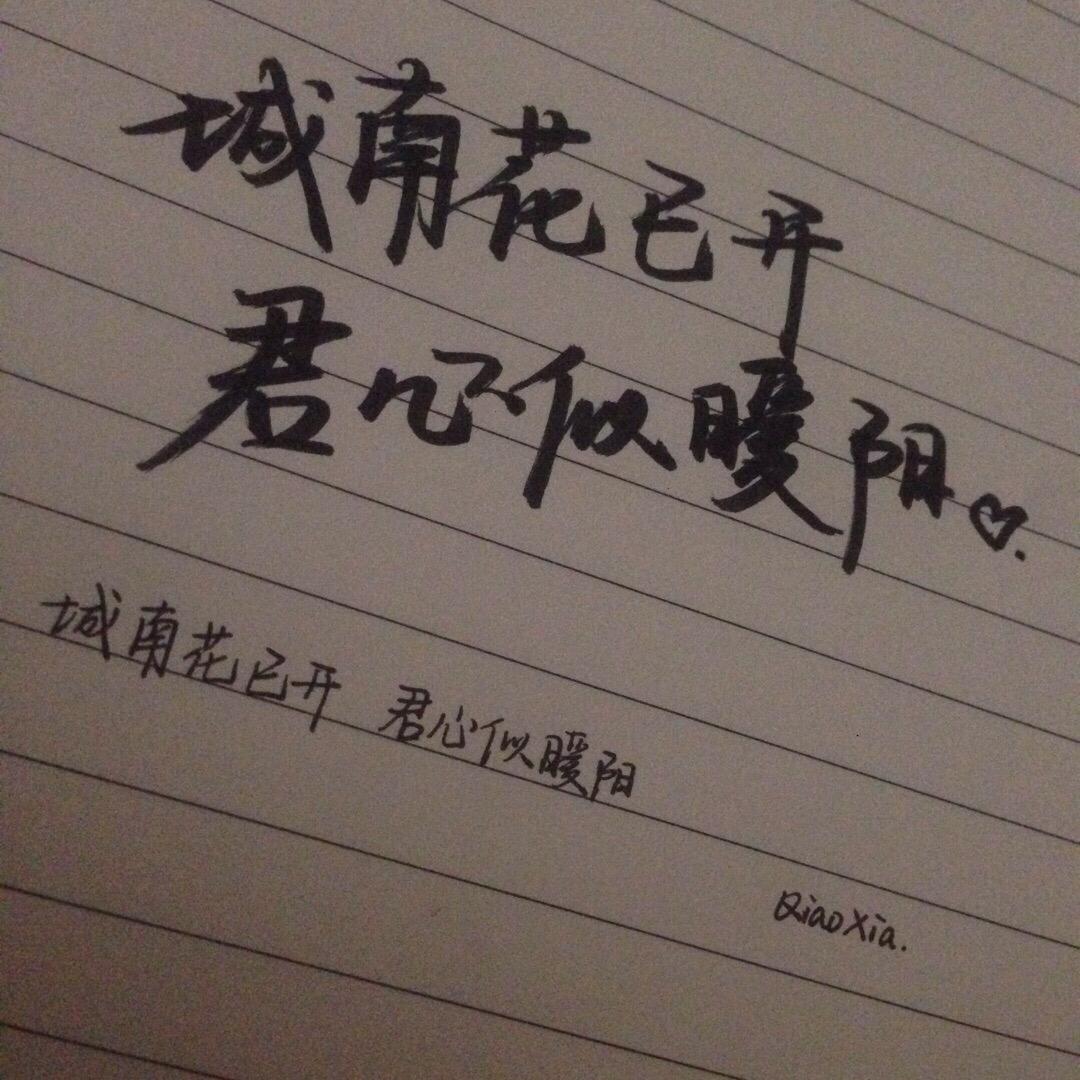 城南花已开
君心似暖阳
城南花已开 君心似暖阳
QiaoXia.